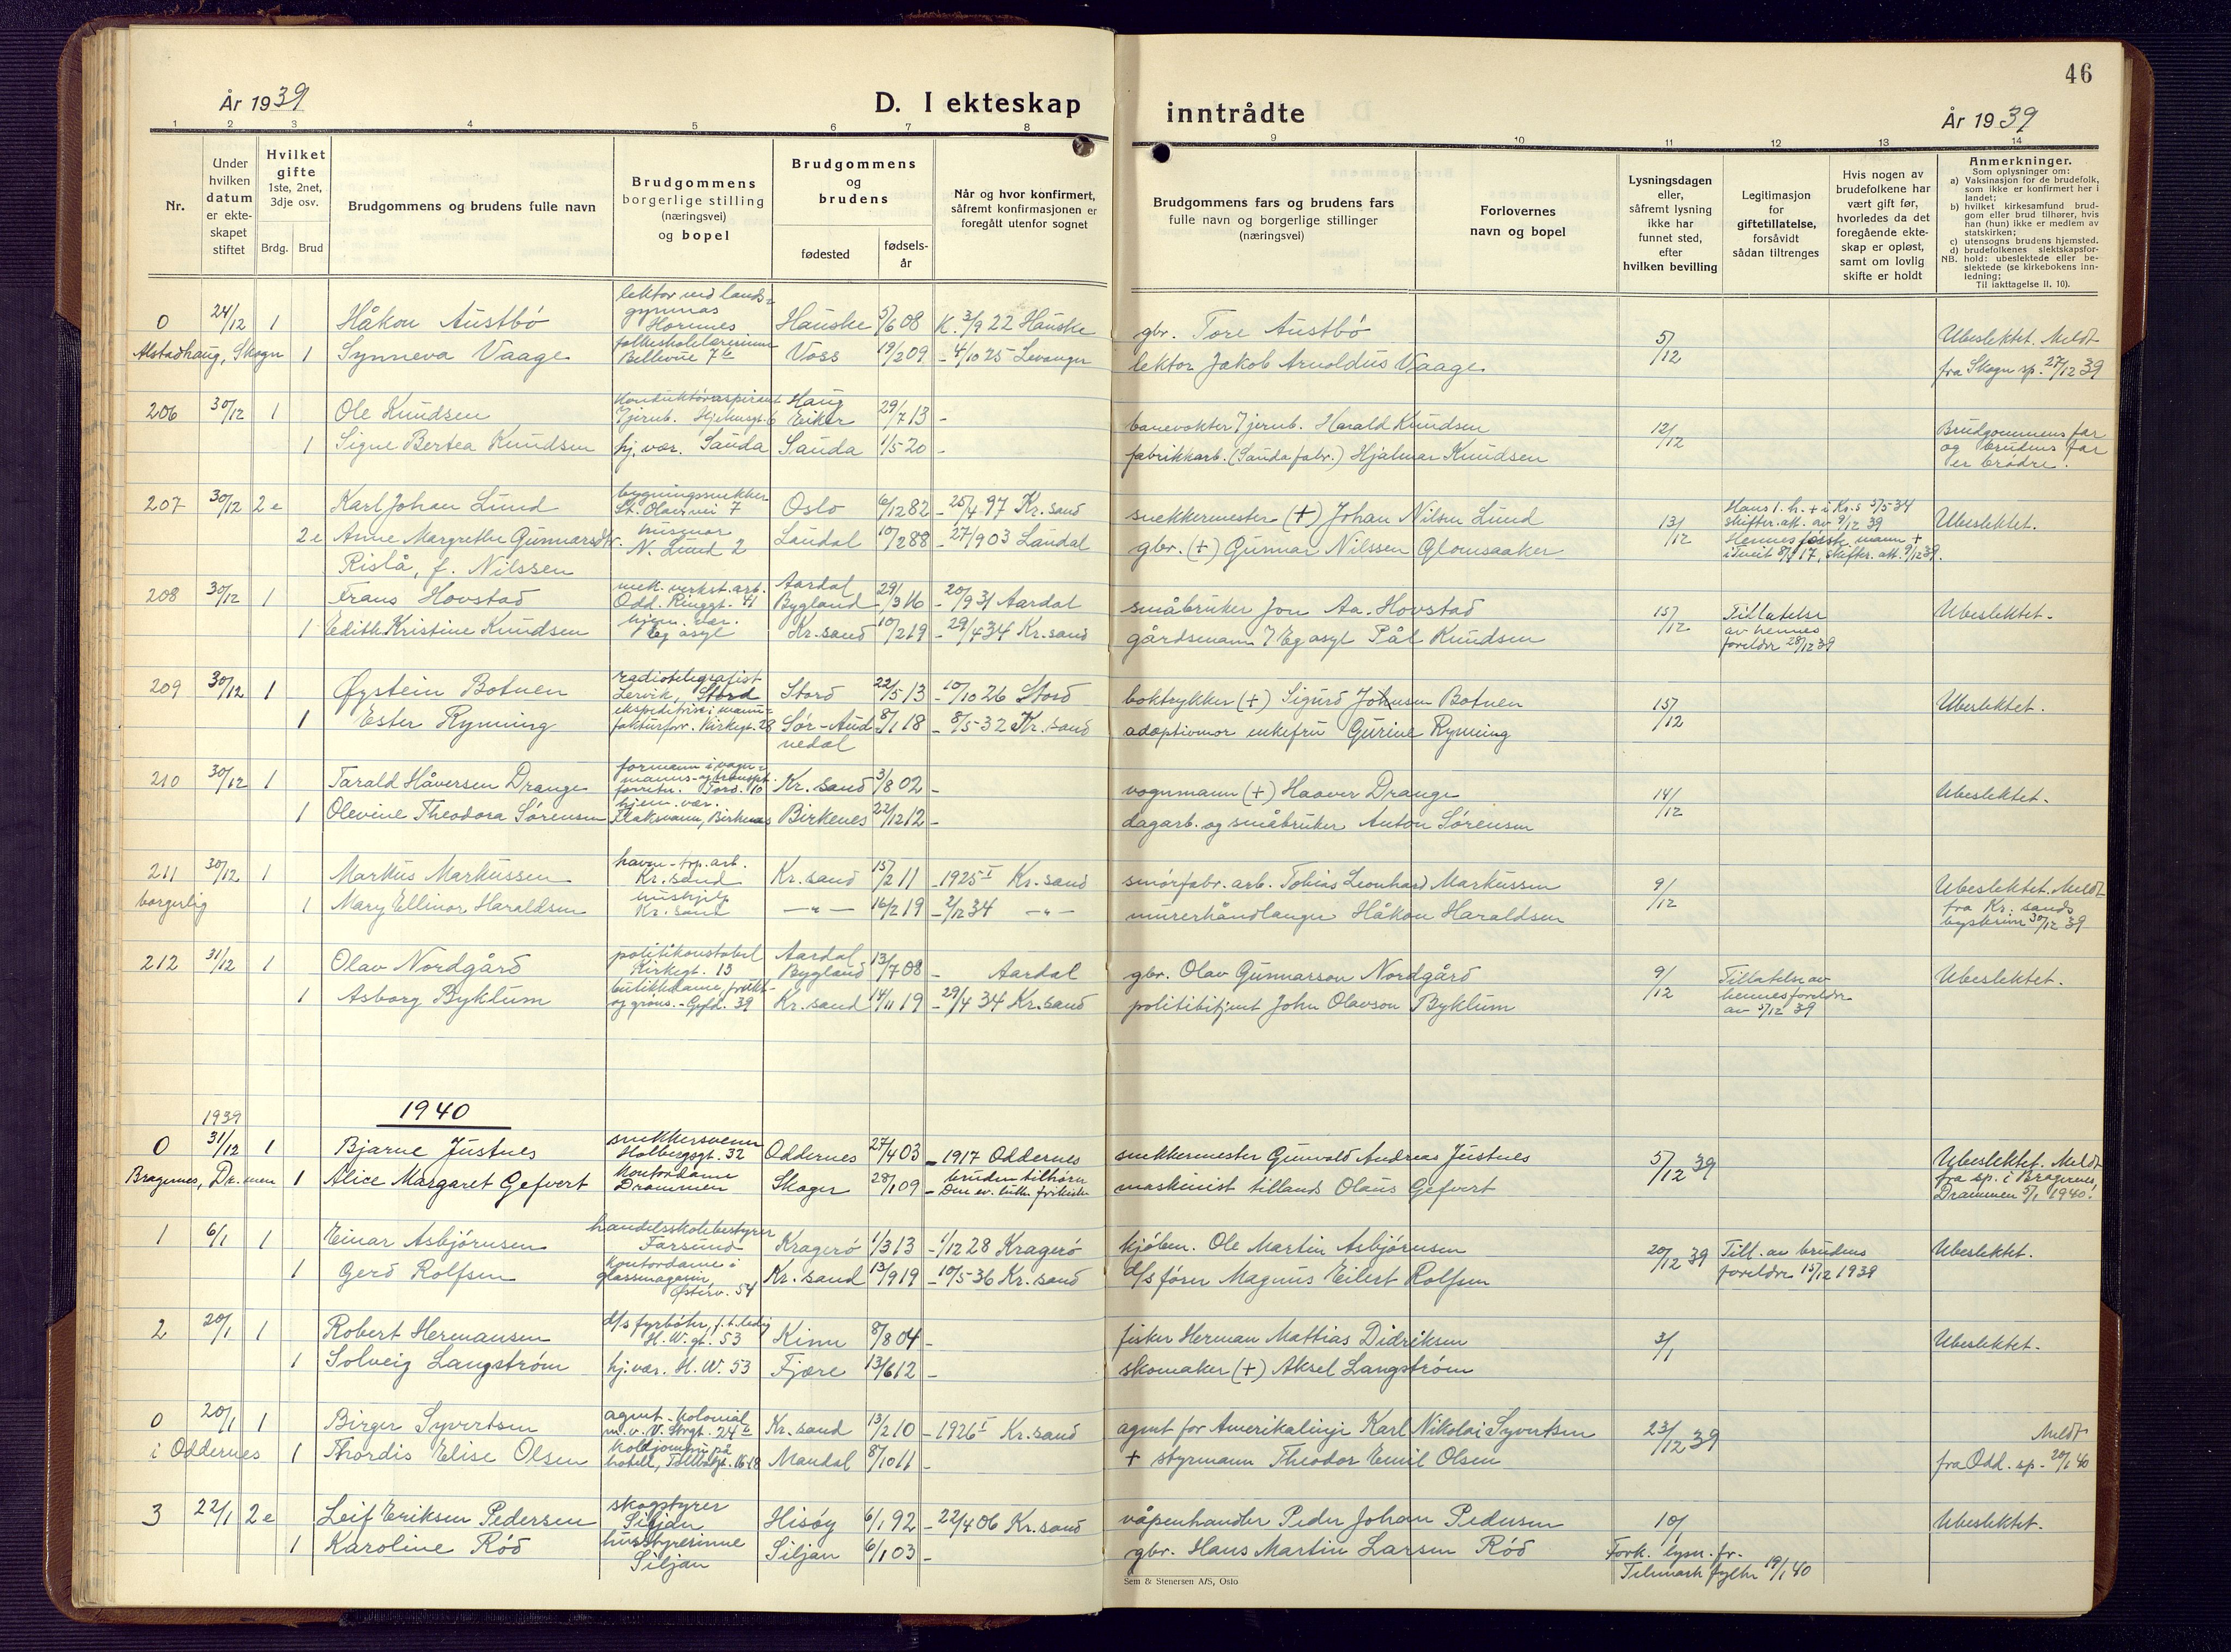 46
År 1939
D. I ekteskap
inntrådte
År 1939
1 2 3 4 5 6 7 8 9 10 11 12 13 14
Nr.
Under hvilken datum er ekte-skapet stiftet
Hvilket gifte 1ste, 2net, 3dje osv.
Brdg. Brud
Brudgommens og brudens fulle navn
Brudgommens borgerlige stilling (næringsvei) og bopel
Brudgommens og brudens
fødested
fødsels-år
Når og hvor konfirmert, såfremt konfirmasjonen er foregått utenfor sognet
Brudgommens fars og brudens fars fulle navn og borgerlige stillinger (næringsvei)
Forlovernes navn og bopel
Lysningsdagen eller, såfremt lysning ikke har funnet sted, efter hvilken bevilling
Legitimasjon for giftetillatelse, forsåvidt sådan tiltrenges
Hvis nogen av brudefolkene har vært gift før, hvorledes da det foregående ekte-skap er opløst, samt om lovlig skifte er holdt
Anmerkninger.
Som oplysninger om:
a) Vaksinasjon for de brudefolk, som ikke er konfirmert her i landet;
b) hvilket kirkesamfund brud-gom eller brud tilhører, hvis han (hun) ikke er medlem av statskirken;
c) utensogns brudens hjemsted.
d) brudefolkenes slektskapsfor-
NB. hold: ubeslektede eller be-slektede (se kirkebokens inn-ledning;
Til iakttagelse II. 10).
0 24/12 1 Håkon Austbö lektor ved lands= gymnas Hornnes Hauske 5/6 08 K. 3/9 22 Hauske gbr. Tore Austbö 5/12 Ubeslektet. Meldt
Alstadhaug, Skogn 1 Synneva Vaage folkeskolelærerinne Bellevue 7b Voss 19/2 09 - 4/10 25 Levanger lektor Jakob Arnoldus Vaage fra Skogn sp. 27/12 39
206 30/12 1 Ole Knudsen Konduktøraspirant Haug Eiker 29/7 13 - banevokter Jernb. Harald Knudsen 12/12 Brudgommens far
1 Signe Bertea Knudsen hj. vær. Sauda Sauda 1/5 20 - fabrikkarb. (Sauda fabr.) Hjalmar Knudsen og brudens far er brödre.
207 30/12 2e Karl Johan Lund bygningssnekker St. Olavs vei 7 Oslo 6/12 82 - 25/4 97 Kr.sand snekkermester (+) Johan Nilsen Lund 13/12 Hans 1. h. + i Kr.s 5/5 34 skifter. att. av 9/12 39 Ubeslektet.
2e Anne Margrethe Gunnarsdtr. husmor N. Lund 2 Laudal 10/2 88 - 27/9 03 Laudal gbr. (+) Gunnar Nilssen Glomsaaker Hennes første mann +
Rislå, f. Nilssen 17, skifter. att. 9/12 39.
208 30/12 1 Frans Hovstad mek. verkst. arb. Odd. Ringgt. 41 Aardal Bygland 29/3 16 - 20/9 31 Aardal småbruker Jon Aa. Hovstad 15/12 Tillatelse Ubeslektet.
1 Edith Kristine Knudsen hjem. vær. Eg asyl Kr.sand 10/2 19 - 29/4 34 Kr.sand gårdsmann Eg asyl Pål Knudsen av hennes foreldre 28/12 39
209 30/12 1 Øystein Botnen radiotelegrafist Lervik, Stord Stord 22/5 13 - 10/10 26 Stord boktrykker (+) Sigurd Johnsen Botnen 15/12 Ubeslektet.
1 Ester Rymming ekspeditrise i manu= fakturforr. Kirkegt. 28 Sör-Aud nedal 8/1 18 - 8/5 32 Kr.sand adoptivmor enkefru Gurine Rymming
210 30/12 1 Tarald Håversen Drange formann i vogn= manns- og transpt. forretn. Tord. 10 Kr.sand 3/8 02 - vognmann (+) Haaver Drange 14/12 Ubeslektet.
1 Olevine Theodora Sörensen hjem. vær. Flaksvann, Birkenes Birkenes 22/12 12 - dagarb. og småbruker Anton Sörensen
211 30/12 1 Markus Markussen havn-trp. arb. Kr.sand Kr.sand 15/2 11 - 1925 I Kr.sand smörfabr. arb. Tobias Leonhard Markussen 9/12 Ubeslektet. Meldt
borgerlig 1 Mary Ellinor Haraldsen hushjelp Kr.sand -"- 16/2 19 - 2/12 34 -"- murerhåndlanger Håkon Haraldsen fra Kr.sands byskriver 30/12 39
212 31/12 1 Olav Nordgård politikonstabel Kirkegt. 13 Aardal Bygland 13/7 08 - Aardal gbr. Olav Gunnarsson Nordgård 9/12 Tillatelse av Ubeslektet.
1 Asborg Byklum butikkdame, frukt- og gröns. - Gyld. 39 Kr.sand 14/11 19 - 29/4 34 Kr.sand politibetjent John Olavson Byklum hennes foreldre av 5/12 39
1940
1939
0 31/12 1 Bjarne Justnes snekkersvenn Holbergsgt. 32 Oddernes 27/4 03 - 1917 Oddernes snekkermester Gunvald Andreas Justnes 5/12 39 Ubeslektet. Meldt
Bragernes, Dr.men 1 Alice Margaret Gefvert kontordame Drammen Skoger 28/1 09 - bruden tilhører Den ev. luth. frikirke maskinist tillands Olaus Gefvert fra sp. i Bragernes, Drammen 5/1 1940.
1 6/1 1 Einar Asbjörnsen handelsskolebestyrer Farsund Kragerö 1/3 13 - 1/12 28 Kragerö kjöbm. Ole Martin Asbjörnsen 20/12 39 Till. av brudens Ubeslektet.
1 Gerd Rolfsen Kontordame i glassmagasin, Østerv. 54 Kr.sand 13/9 19 - 10/5 36 Kr.sand d/s förer Magnus Eilert Rolfsen foreldre 15/12 1939
2 20/1 1 Robert Hermansen d/s fyrböter, f.t. ledig H.W.gt. 53 Kinn 8/8 04 - fisker Herman Mattias Didriksen 3/1 Ubeslektet.
1 Solveig Langström hj.vær. H.W. 53 Fjære 13/6 12 - skomaker (+) Aksel Langström
0 20/1 1 Birger Syvertsen agent - kolonial m.v. V. Strgt. 24b Kr.sand 13/2 10 - 1926 I Kr.sand agent for Amerikalinje Karl Nikolai Syvertsen 23/12 39 Meldt
i Oddernes 1 Thordis Elise Olsen koldjomfru på hotell, Tollbodgt. 16-18 Mandal 8/10 11 - + styrmann Theodor Emil Olsen fra Odd. sp. 20/1 40
3 22/1 2e Leif Eriksen Pedersen skogstyrer Siljan Hisöy 6/1 92 - 22/4 06 Kr.sand våpenhandler Peder Johan Pedersen 10/1 Ubeslektet.
1 Karoline Röd husstyrerinne Siljan Siljan 6/1 03 - gbr. Hans Martin Larsen Röd Fork. lysn. fr. Telemark fylke 19/1 40
Sem & Stenersen A/S, Oslo